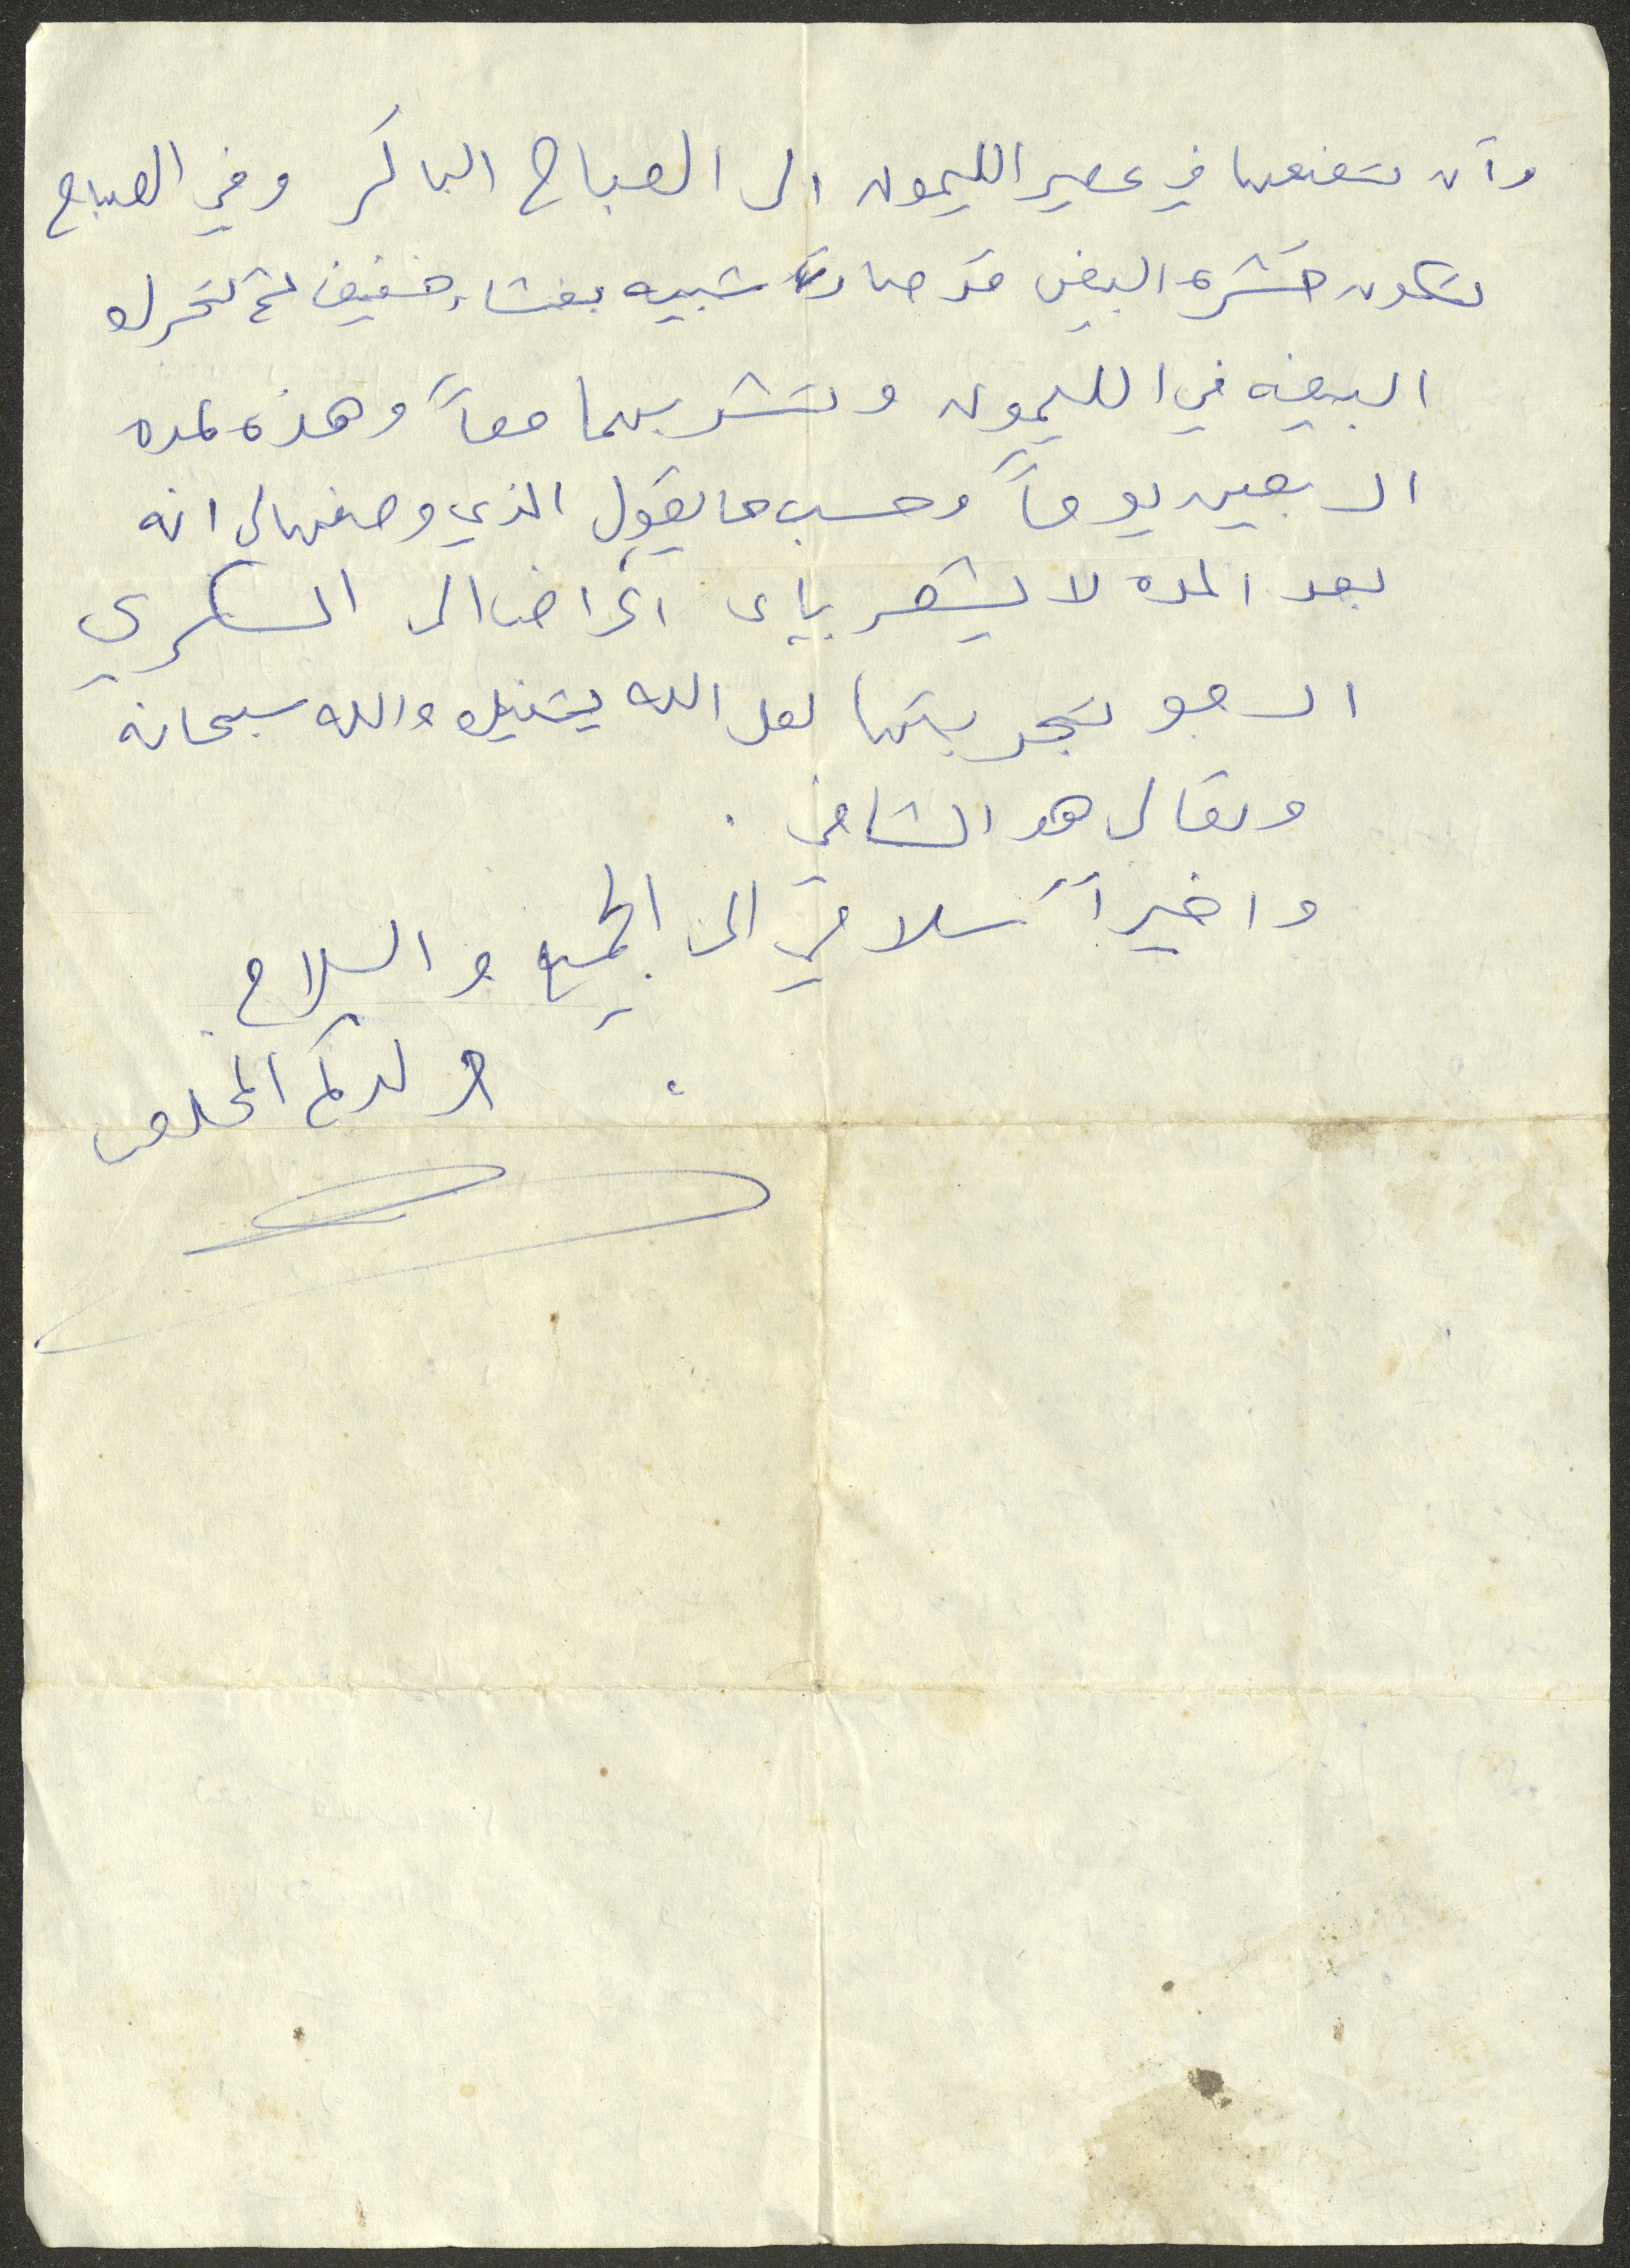 وأن تضعها في عصير الليمون الى الصباح الباكر وفي الصباح
تكون قشرة البيض قد صارت شبيه بغشاء خفيف ثم تحرك
البيضه في الليمون وتشربهما معاً وهذه لمده
اربعين يوماً وحسب ما يقول الذي وصفها لي انه
بعد المده لا يشعر بأى اعراض الى السكري
ارجو تجربتها لعل الله يشفيك والله سبحانه
وتعالى هو الشافي .
واخيراً سلامي الى الجميع والسلام .
ولدكم المخلص